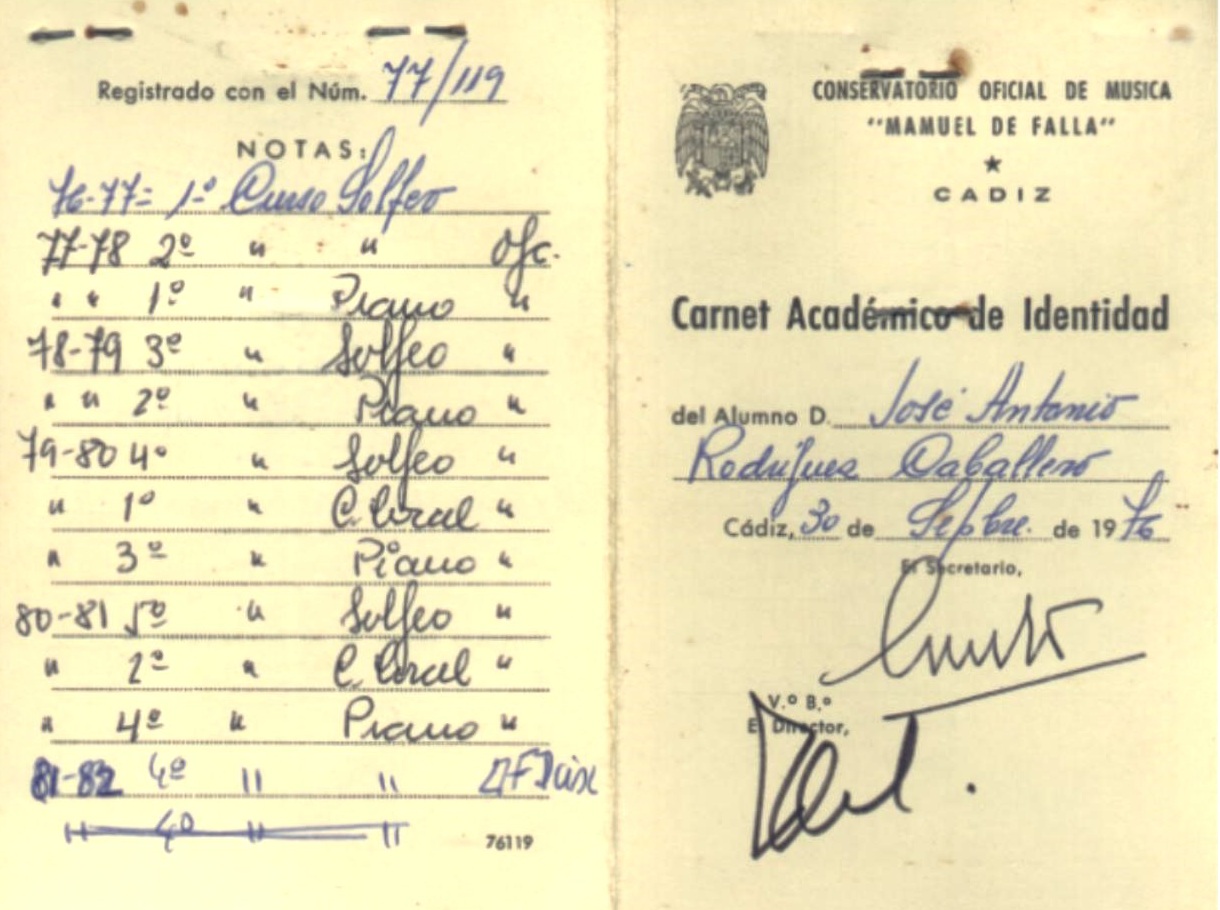 Registrado con el Núm. 77/119
NOTAS:
76-77= 1º Curso Solfeo
77-78 2º " " Ofc.
" " 1º " Piano "
78-79 3º " Solfeo "
" " 2º " Piano "
79-80 4º " Solfeo "
" 1º " C. Coral "
" 3º " Piano "
80-81 5º " Solfeo "
" 2º " C. Coral "
" 4º " Piano "
81-82 4º " "
" 4º " "
76119
CONSERVATORIO OFICIAL DE MUSICA
"MAMUEL DE FALLA"
CADIZ
Carnet Académico de Identidad
del Alumno D. José Antonio
Rodríguez Caballero
Cádiz, 30 de Sepbre. de 1976
El Secretario,
V.º B.º
El Director,